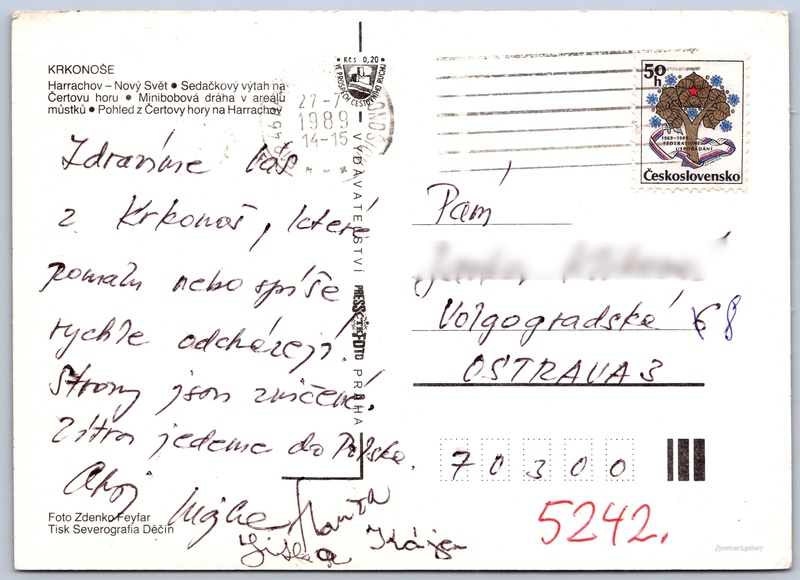 KRKONOŠE
Harrachov – Nový Svět ● Sedačkový výtah na
Čertovu horu ● Minibobová dráha v areálu
můstků ● Pohled z Čertovy hory na Harrachov
Kčs 0,20
VE PROSPĚCH CESTOVNÍHO RUCHU
27-7
1989
14-15
50 h
1969-1989
FEDERATIVNÍ
USPOŘÁDÁNÍ
Československo
Zdravíme Vás
z Krkonoš, které
pomalu nebo spíše
rychle odcházejí.
Stromy jsou zničené.
Zítra jedeme do Polska.
Ahoj
Hanka
Jitka Kája
VYDAVATELSTVÍ PRESSFOTO PRAHA
Paní
Volgogradská 6 8
OSTRAVA 3
70300
5242.
Foto Zdenko Feyfar
Tisk Severografia Děčín
postcard.gallery